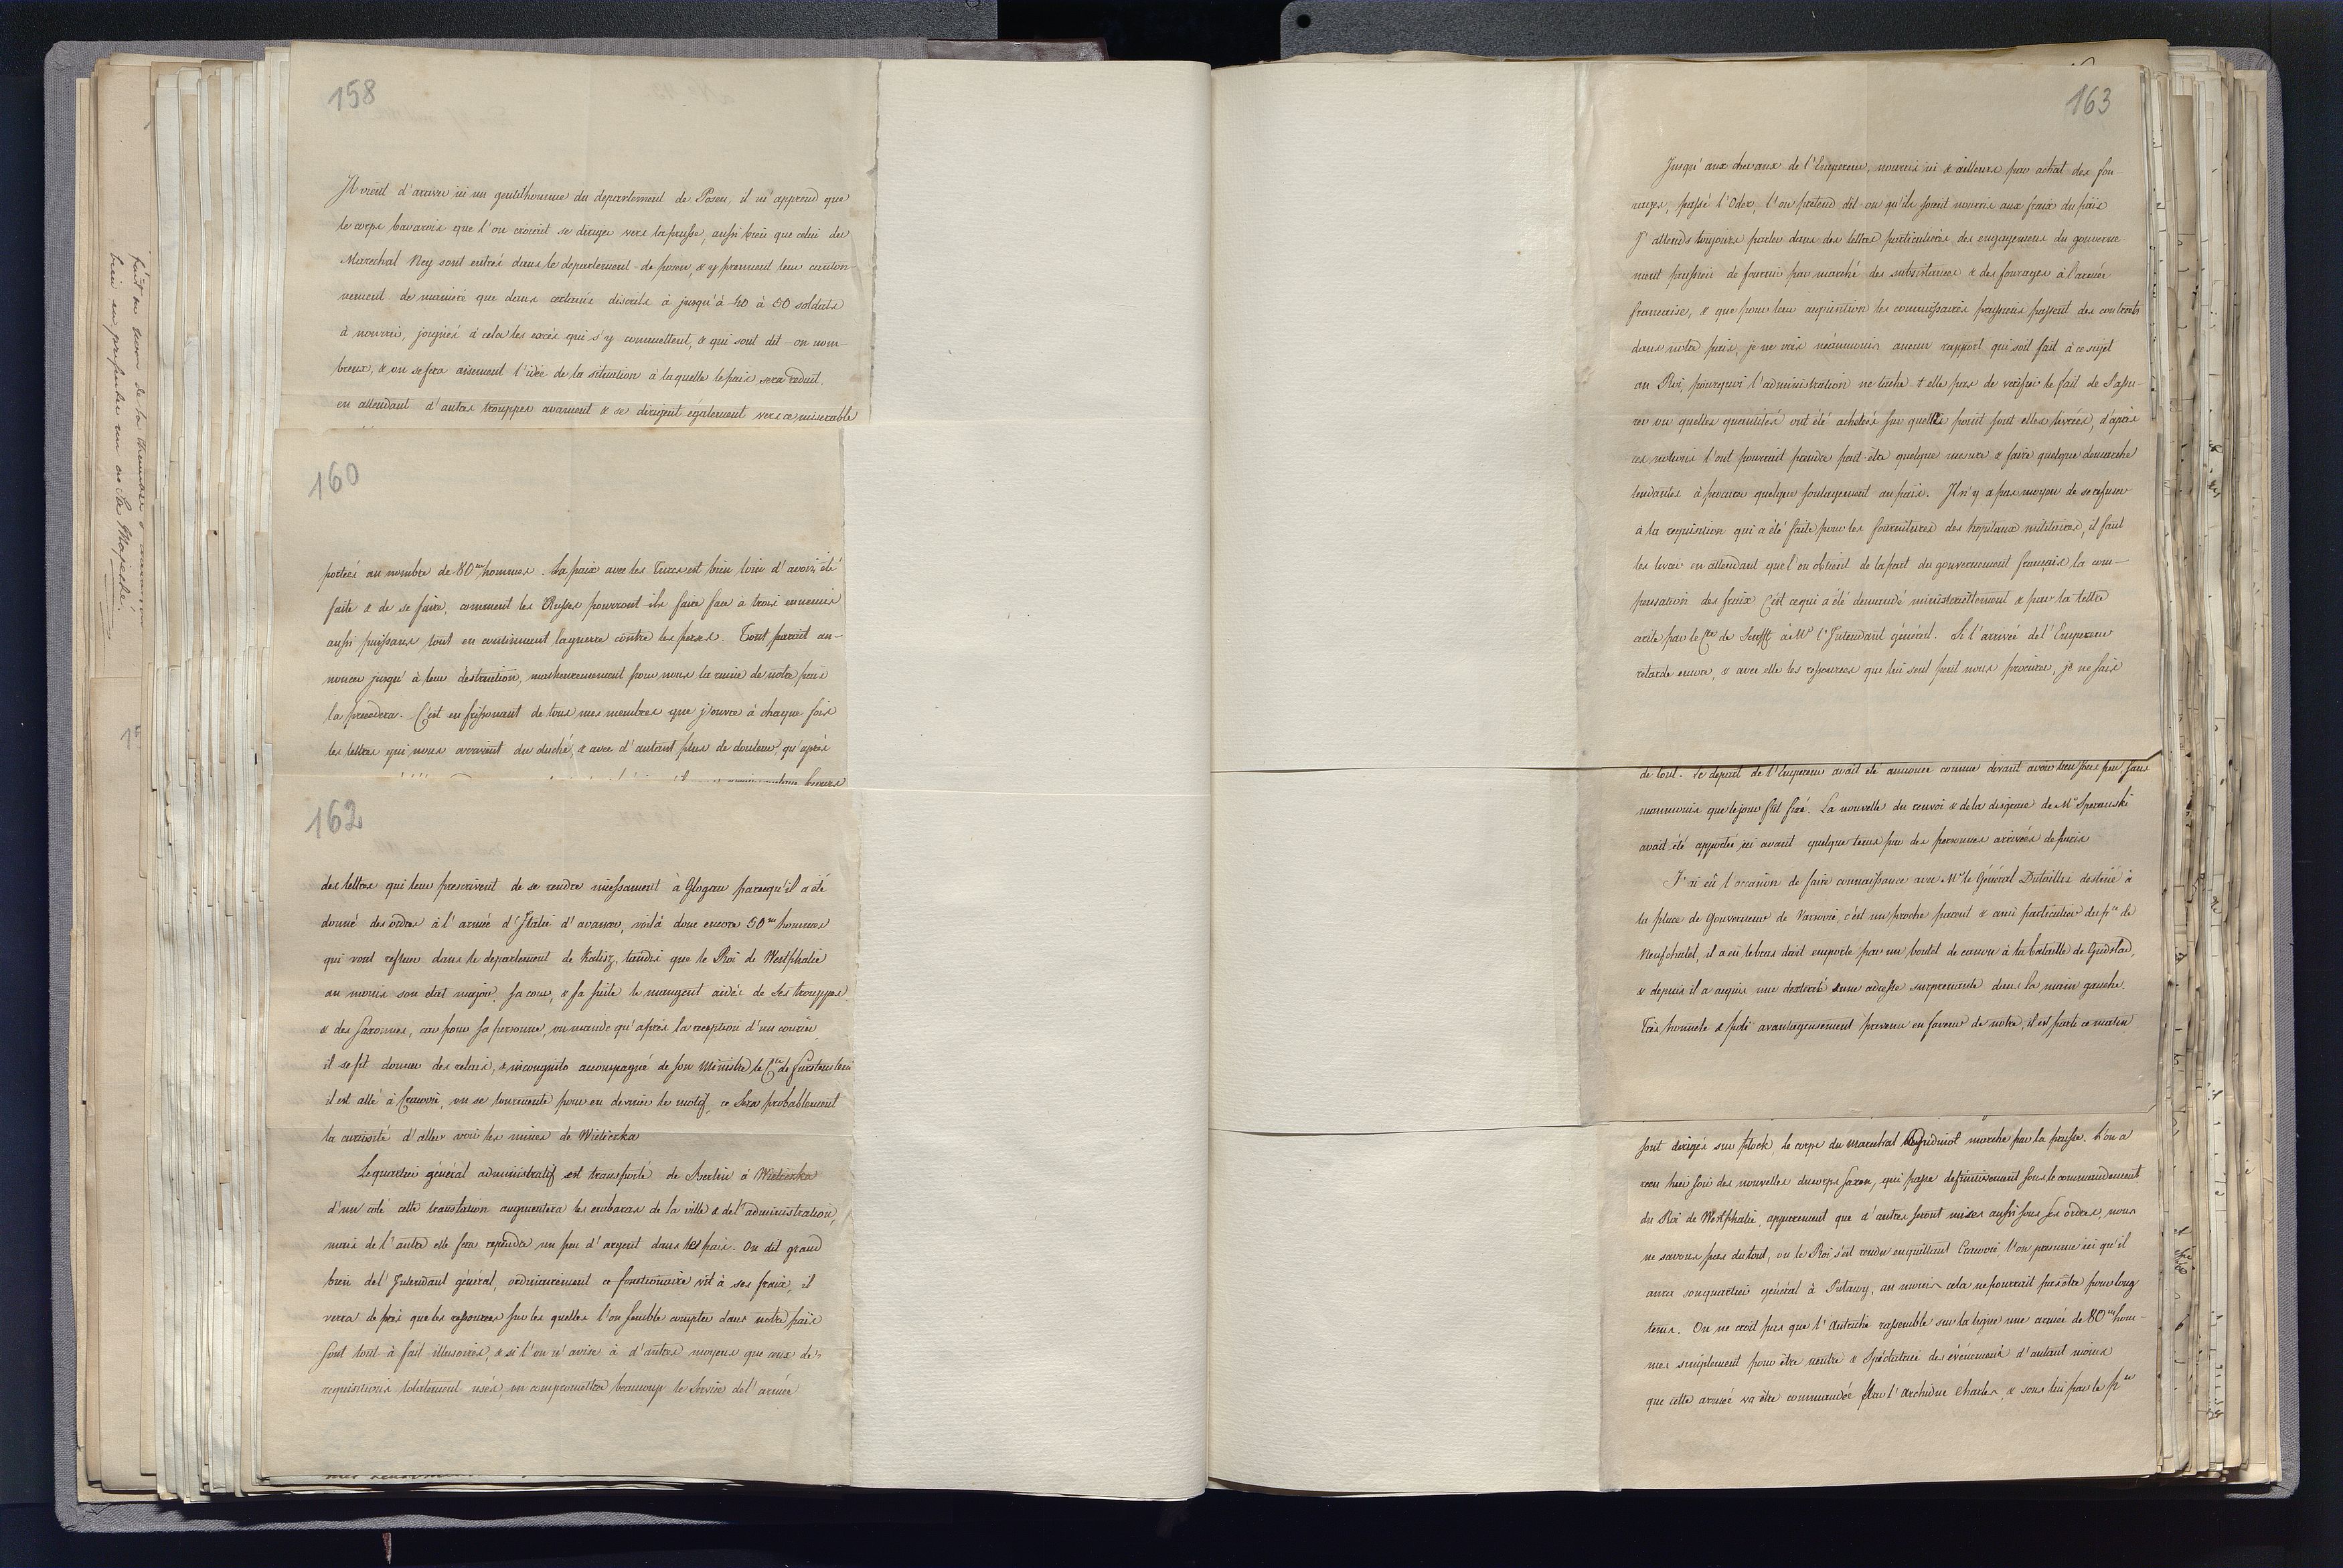 158
Il vient d'arriver ici un gentilhomme du departement de Posen, il m'apprend que
le corps bavarois que l'on croioit se diriger vers la prusse, aussi bien que celui du
Marechal Ney sont entrés dans le departement de posen, & y prennent leur canton-
nement de maniere que dans certains districts à jusqu'à 40 à 50 soldats
à nourrir, joignés à cela les excès qui s'y commettent, & qui sont dit-on nom-
breux, & on se fera aisement l'idée de la situation à laquelle le pais sera reduit.
en attendant d'autres trouppes avancent & se dirigent également vers ce miserable
160
portées au nombre de 80m hommes. La paix avec les Turcs est bien loin d'avoir été
faite & de se faire, comment les Russes pourront-ils faire face à trois ennemis
aussi puissans tout en continuant la guerre contre les perses. Tout parait an-
noncer jusqu'à leur destruction, malheureusement pour nous la ruine de notre pais
la precedera. C'est en frissonant de tous mes membres que j'ouvre à chaque fois
les lettres qui nous arrivent du duché, & avec d'autant plus de douleur qu'après
162
des lettres qui leur prescrivent de se rendre incessament à Glogau parcequ'il a été
donné des ordres à l'armée d'Italie d'avancer, voilà donc encore 50m hommes
qui vont refluer dans le departement de Kalisz, tandis que le Roi de Westphalie
au moins son etat major, sa cour, & sa suite le mangent aidés de ses trouppes
& des saxonnes, car pour sa personne, on mande qu'après la reception d'un courier
il se fit donner des relais, & incognito accompagné de son Ministre le Cte de Furstenstein
il est allé à Cracovie, on se tourmente pour en deviner le motif, ce sera probablement
la curiosité d'aller voir les mines de Wieliczka
Le quartier général administratif est transporté de Berlin à Wieliczka
d'un coté cette translation augmentera les embaras de la ville & de l'administration,
mais de l'autre elle fera repandre un peu d'argent dans le pais. On dit grand
bien de l'Intendant général, ordinairement ce fonctionnaire vit à ses fraix, il
verra de près que les ressources sur les quelles l'on semble compter dans notre païs
sont tout à fait illusoires, & si l'on n'avise à d'autres moyens que ceux de
requisitions totalement usés, on compromettra beaucoup le service de l'armée
163
Jusqu'aux chevaux de l'Empereur, nourris ici & ailleurs par achat des fou-
rages, passé l'Oder, l'on pretend dit-on qu'ils soient nourris aux fraix du païs
J'attends toujours parler dans des lettres particulières, des engagemens du gouverne-
ment prussien de fournir par marché des subsistances & des fourages à l'armée
francaise, & que pour leur aquisition les commissaires prussiens passent des contrats
dans notre pais, je ne vois néanmoins aucun rapport qui soit fait à ce sujet
au Roi, pourquoi l'administration ne tache-t-elle pas de verifier le fait de s'assu-
rer ou quelles quantités ont été achetées sur quelle point sont elles livrées, d'après
ces notions l'ont pourrait prendre peut-être quelque mesure & faire quelque demarche
tendantes à procurer quelque soulagement au pais. Il n'y a pas moyen de se refuser
à la requisition qui a été faite pour les fournitures des hopitaux militaires, il faut
les livrer en attendant que l'on obtient de la part du gouvernement français la com-
pensation des fraix. C'est ce qui a été demandé ministeriellement & par la lettre
ecrite par le Cte de Senfft à Mr l'Intendant général. Si l'arrivée de l'Empereur
retarde encore, & avec elle les ressources que lui seul peut nous procurer, je ne sais
de tout. Le depart de l'Empereur avait été annoncé comme devant avoir lieu sous peu, sans
neanmoins que le jour fut fixé. La nouvelle du renvoi & de la disgrace de Mr Speranski
avait été apportée ici avant quelque tems par des personnes arrivées de paris
J'ai eû l'occasion de faire connaissance avec Mr le Général Dutaillis destiné à
la place de Gouverneur de Varsovie, c'est un proche parent & ami particulier du pce de
Neufchatel, il a eu le bras droit emporté par un boulet de canon à la bataille de Gudstad,
& depuis il a aquis une dexterité & une adresse surprenante dans la main gauche.
Très honnete & poli avantageusement prevenu en faveur de notre, il est parti ce matin
sont dirigés sur plock, le corps du marechal Oudinot marche par la prusse. L'on a
recu hier soir des nouvelles du corps saxon, qui passe definitivement sous le commandement
du Roi de Westphalie, apparement que d'autres seront mises aussi sous ses ordres, nous
ne savons pas du tout, ou le Roi s'est rendu en quittant Cracovie, l'on presume ici qu'il
aura son quartier général à Pulawy, au moins cela ne pourrait pas être pour long
tems. On ne croit pas que l'Autriche rassemble sur la ligne une armée de 80m hom-
mes simplement pour être neutre & spectatrice des événemens d'autant moins
que cette armée va être commandée par l'archiduc Charles, & sous lui par le pce